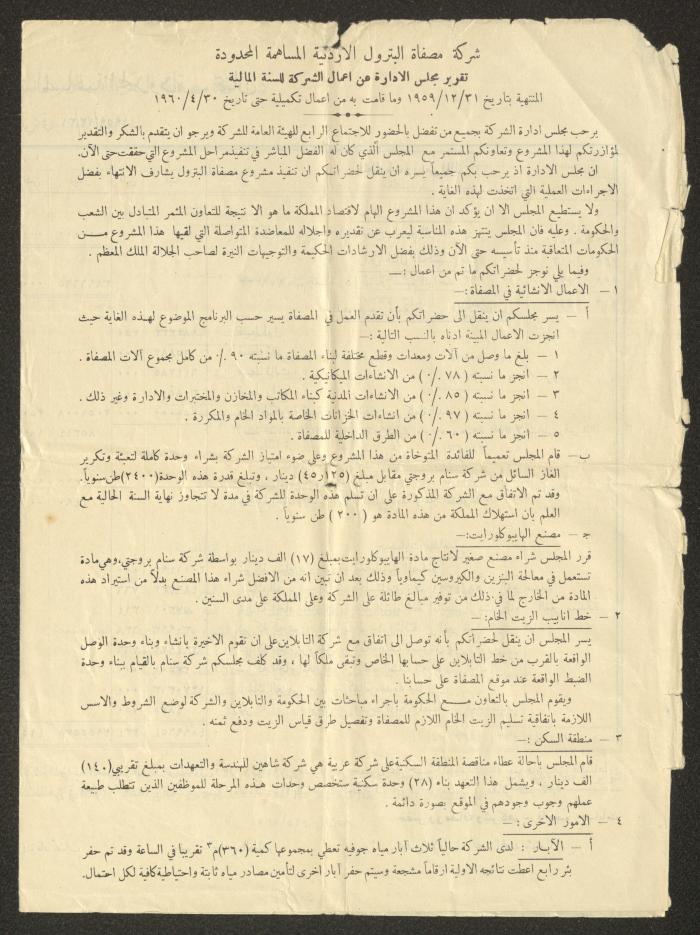 شركة مصفاة البترول الاردنية المساهمة المحدودة
تقرير مجلس الادارة عن اعمال الشركة للسنة المالية
المنتهية بتاريخ ١٩٥٩/١٢/٣١ وما قامت به من اعمال تكميلية حتى تاريخ ١٩٦٠/٤/٣٠
يرحب مجلس ادارة الشركة بجميع من تفضل بالحضور للاجتماع الرابع للهيئة العامة للشركة ويرجو ان يتقدم بالشكر والتقدير
لمؤازرتكم لهذا المشروع وتعاونكم المستمر مع المجلس الذي كان له الفضل المباشر في تنفيذ مراحل المشروع التي حققت حتى الآن.
ان مجلس الادارة اذ يرحب بكم جميعاً يسره ان ينقل لحضراتكم ان تنفيذ مشروع مصفاة البترول يشارف الانتهاء بفضل
الاجراءات العملية التي اتخذت لهذه الغاية .
ولا يستطيع المجلس الا ان يؤكد ان هذا المشروع الهام لاقتصاد المملكة ما هو الا نتيجة للتعاون المثمر المتبادل بين الشعب
والحكومة . وعليه فان المجلس ينتهز هذه المناسبة ليعرب عن تقديره واجلاله للمعاضدة المتواصلة التي لقيها هذا المشروع مـــن
الحكومات المتعاقبة منذ تأسيسه حتى الآن وذلك بفضل الارشادات الحكيمة والتوجيهات النيرة لصاحب الجلالة الملك المعظم .
وفيما يلي نوجز لحضراتكم ما تم من اعمال :—
١ – الاعمال الانشائية في المصفاة :—
أ – يسر مجلسكم ان ينقل الى حضراتكم بأن تقدم العمل في المصفاة يسير حسب البرنامج الموضوع لهـذه الغاية حيث
انجزت الاعمال المبينة ادناه بالنسب التالية :—
١ – بلغ ما وصل من آلات ومعدات وقطع مختلفة لبناء المصفاة ما نسبته ٩٠ ٠/٠ من كامل مجموع آلات المصفاة .
٢ – انجز ما نسبته ( ٧٨ ٠/٠ ) من الانشاءات الميكانيكية .
٣ – انجز ما نسبته ( ٨٥ ٠/٠ ) من الانشاءات المدنية كبناء المكاتب والمخازن والمختبرات والادارة وغير ذلك .
٤ – انجز ما نسبته ( ٩٧ ٠/٠ ) من انشاءات الخزانات الخاصة بالمواد الخام والمكررة .
٥ – انجز ما نسبته ( ٦٠ ٠/٠ ) من الطرق الداخلية للمصفاة .
ب – قام المجلس تعميماً للفائدة المتوخاة من هذا المشروع وعلى ضوء امتياز الشركة بشراء وحدة كاملة لتعبئة وتكرير
الغاز السائل من شركة سنام بروجتي مقابل مبلغ (٤٥٫١٢٥) دينار ، وتبلغ قدرة هذه الوحدة (٢٤٠٠) طن سنوياً.
وقد تم الاتفاق مع الشركة المذكورة على ان تسلم هذه الوحدة للشركة في مدة لا تتجاوز نهاية السنة الحالية مع
العلم بان استهلاك المملكة من هذه المادة هو ( ٢٠٠ ) طن سنوياً .
جـ – مصنع الهايبوكلورايت:—
قرر المجلس شراء مصنع صغير لانتاج مادة الهايبوكلورايت بمبلغ (١٧) الف دينار بواسطة شركة سنام بروجتي، وهي مادة
تستعمل في معالجة البنزين والكيروسين كيماوياً وذلك بعد ان تبين انه من الافضل شراء هذا المصنع بدلاً من استيراد هذه
المادة من الخارج لما في ذلك من توفير مبالغ طائلة على الشركة وعلى المملكة على مدى السنين .
٢ – خط انابيب الزيت الخام: —
يسر المجلس ان ينقل لحضراتكم بأنه توصل الى اتفاق مع شركة التابلاين على ان تقوم الاخيرة بانشاء وبناء وحدة الوصل
الواقعة بالقرب من خط التابلاين على حسابها الخاص وتبقى ملكاً لها ، وقد كلف مجلسكم شركة سنام بالقيام ببناء وحدة
الضبط الواقعة عند موقع المصفاة على حسابنا .
ويقوم المجلس بالتعاون مـــع الحكومة باجراء مباحثات بين الحكومة والتابلاين والشركة لوضع الشروط والاسس
اللازمة باتفاقية تسليم الزيت الخام اللازم للمصفاة وتفصيل طرق قياس الزيت ودفع ثمنه .
٣ – منطقة السكن :—
قام المجلس باحالة عطاء مناقصة المنطقة السكنية على شركة عربية هي شركة شاهين للهندسة والتعهدات بمبلغ تقريبي (١٤٠)
الف دينار ، ويشمل هذا التعهد بناء (٢٨) وحدة سكنية ستخصص وحدات هـذه المرحلة للموظفين الذين تتطلب طبيعة
عملهم وجوب وجودهم في الموقع بصورة دائمة .
٤ – الامور الاخرى : —
أ – الآبــار : لدى الشركة حالياً ثلاث آبار مياه جوفيه تعطي بمجموعها كمية (٣٦٠) م٣ تقريبا في الساعة وقد تم حفر
بئر رابع اعطت نتائجه الاولية ارقاماً مشجعة وسيتم حفر آبار اخرى لتأمين مصادر مياه ثابتة واحتياطية كافية لكل احتمال.